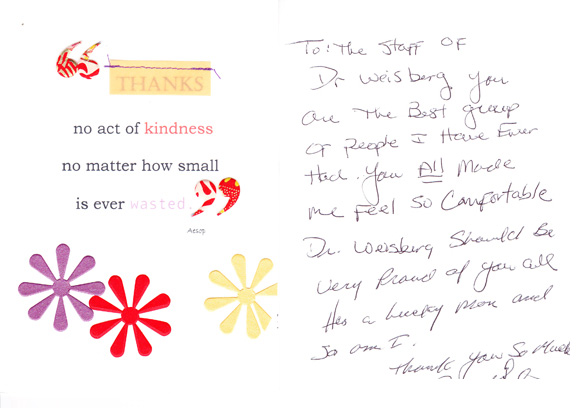 THANKS
no act of kindness
no matter how small
is ever wasted.
Aesop
To: The Staff OF
Dr Weisberg, you
are The Best group
OF People I Have Ever
Had. You All Made
me Feel So Comfortable
Dr. Weisberg Should Be
very Proud of you all
He's a Lucky Man and
So am I.
Thank you So Much